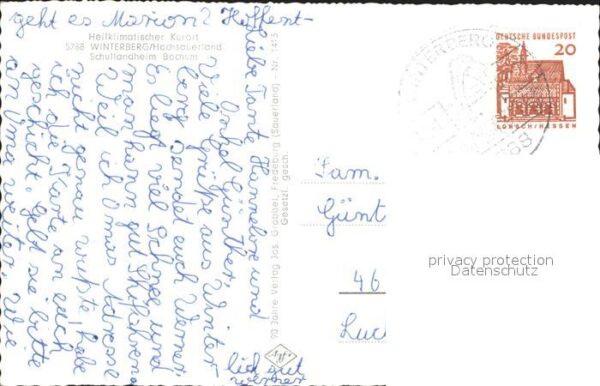 geht es Marion? Hoffent-
Heilklimatischer Kurort
5788 WINTERBERG/Hochsauerland
Schullandheim Bochum
Liebe Tante Hannelore und
Onkel Günther,
Viele Grüße aus Winter-
berg sendet euch Werner.
Es liegt viel Schnee und
man kann gut Skifahren.
Weil ich Omas Adresse
nicht genau wußte, habe
ich die Karte an euch
geschickt. Gebt sie bitte
an Oma weiter. Wie
lich gut
werner
90 Jahre Verlag Jos. Grobbel, Fredeburg (Sauerland) - Nr. 1415
Gesetzl. gesch.
Agfa
WINTERBERG
DEUTSCHE BUNDESPOST
20
LORSCH/HESSEN
Fam.
Günt
46
privacy protection
Datenschutz